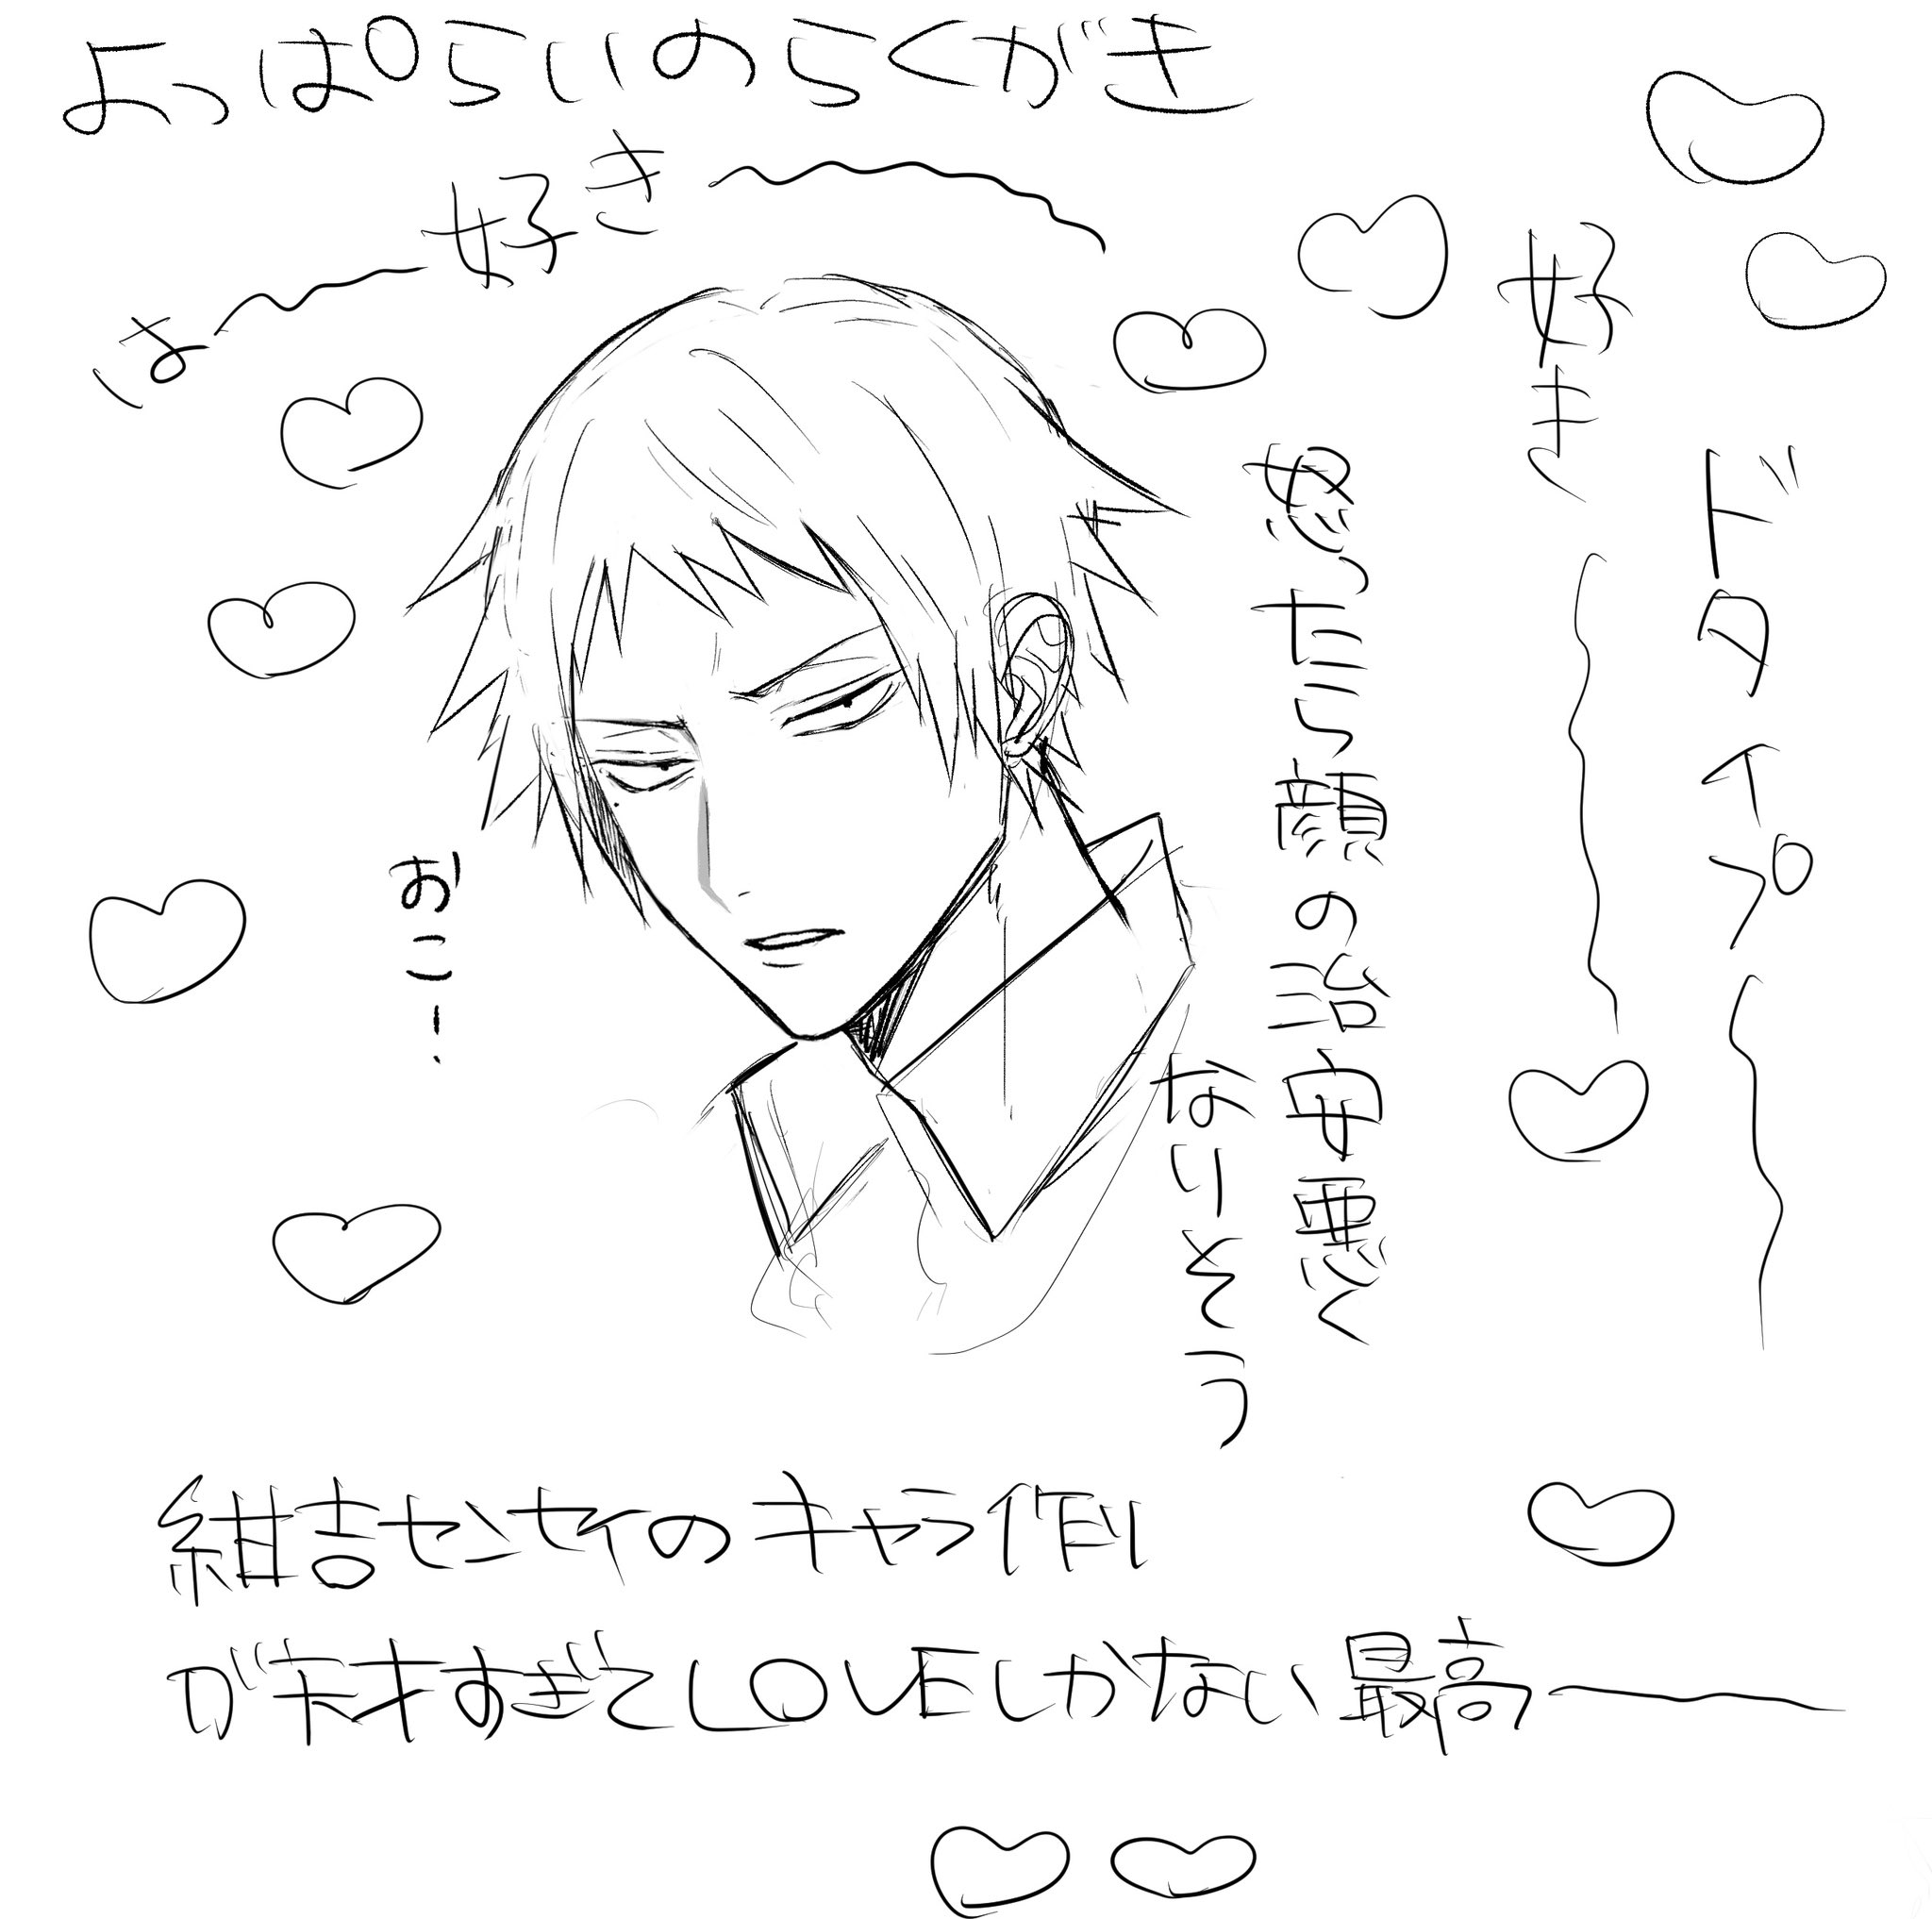 よっぱらいのらくがき
は〜好き〜
好き〜
ドタイプ〜
怒ったら顔の治安悪く
なりそう
おこ!
紺吉センセイのキャラ作り
が天才すぎてLOVEしかない最高ー